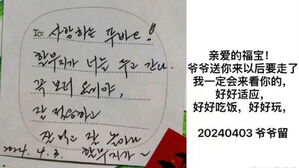 To: 사랑하는 푸바오!
할부지가 너를 두고 간다.
꼭 보러 올게.
잘 적응하고
잘 먹고 잘 놀아라
2024. 4. 3. 할부지가~
亲爱的福宝！
爷爷送你来以后要走了
我一定会来看你的，
好好适应，
好好吃饭，好好玩，
20240403 爷爷留